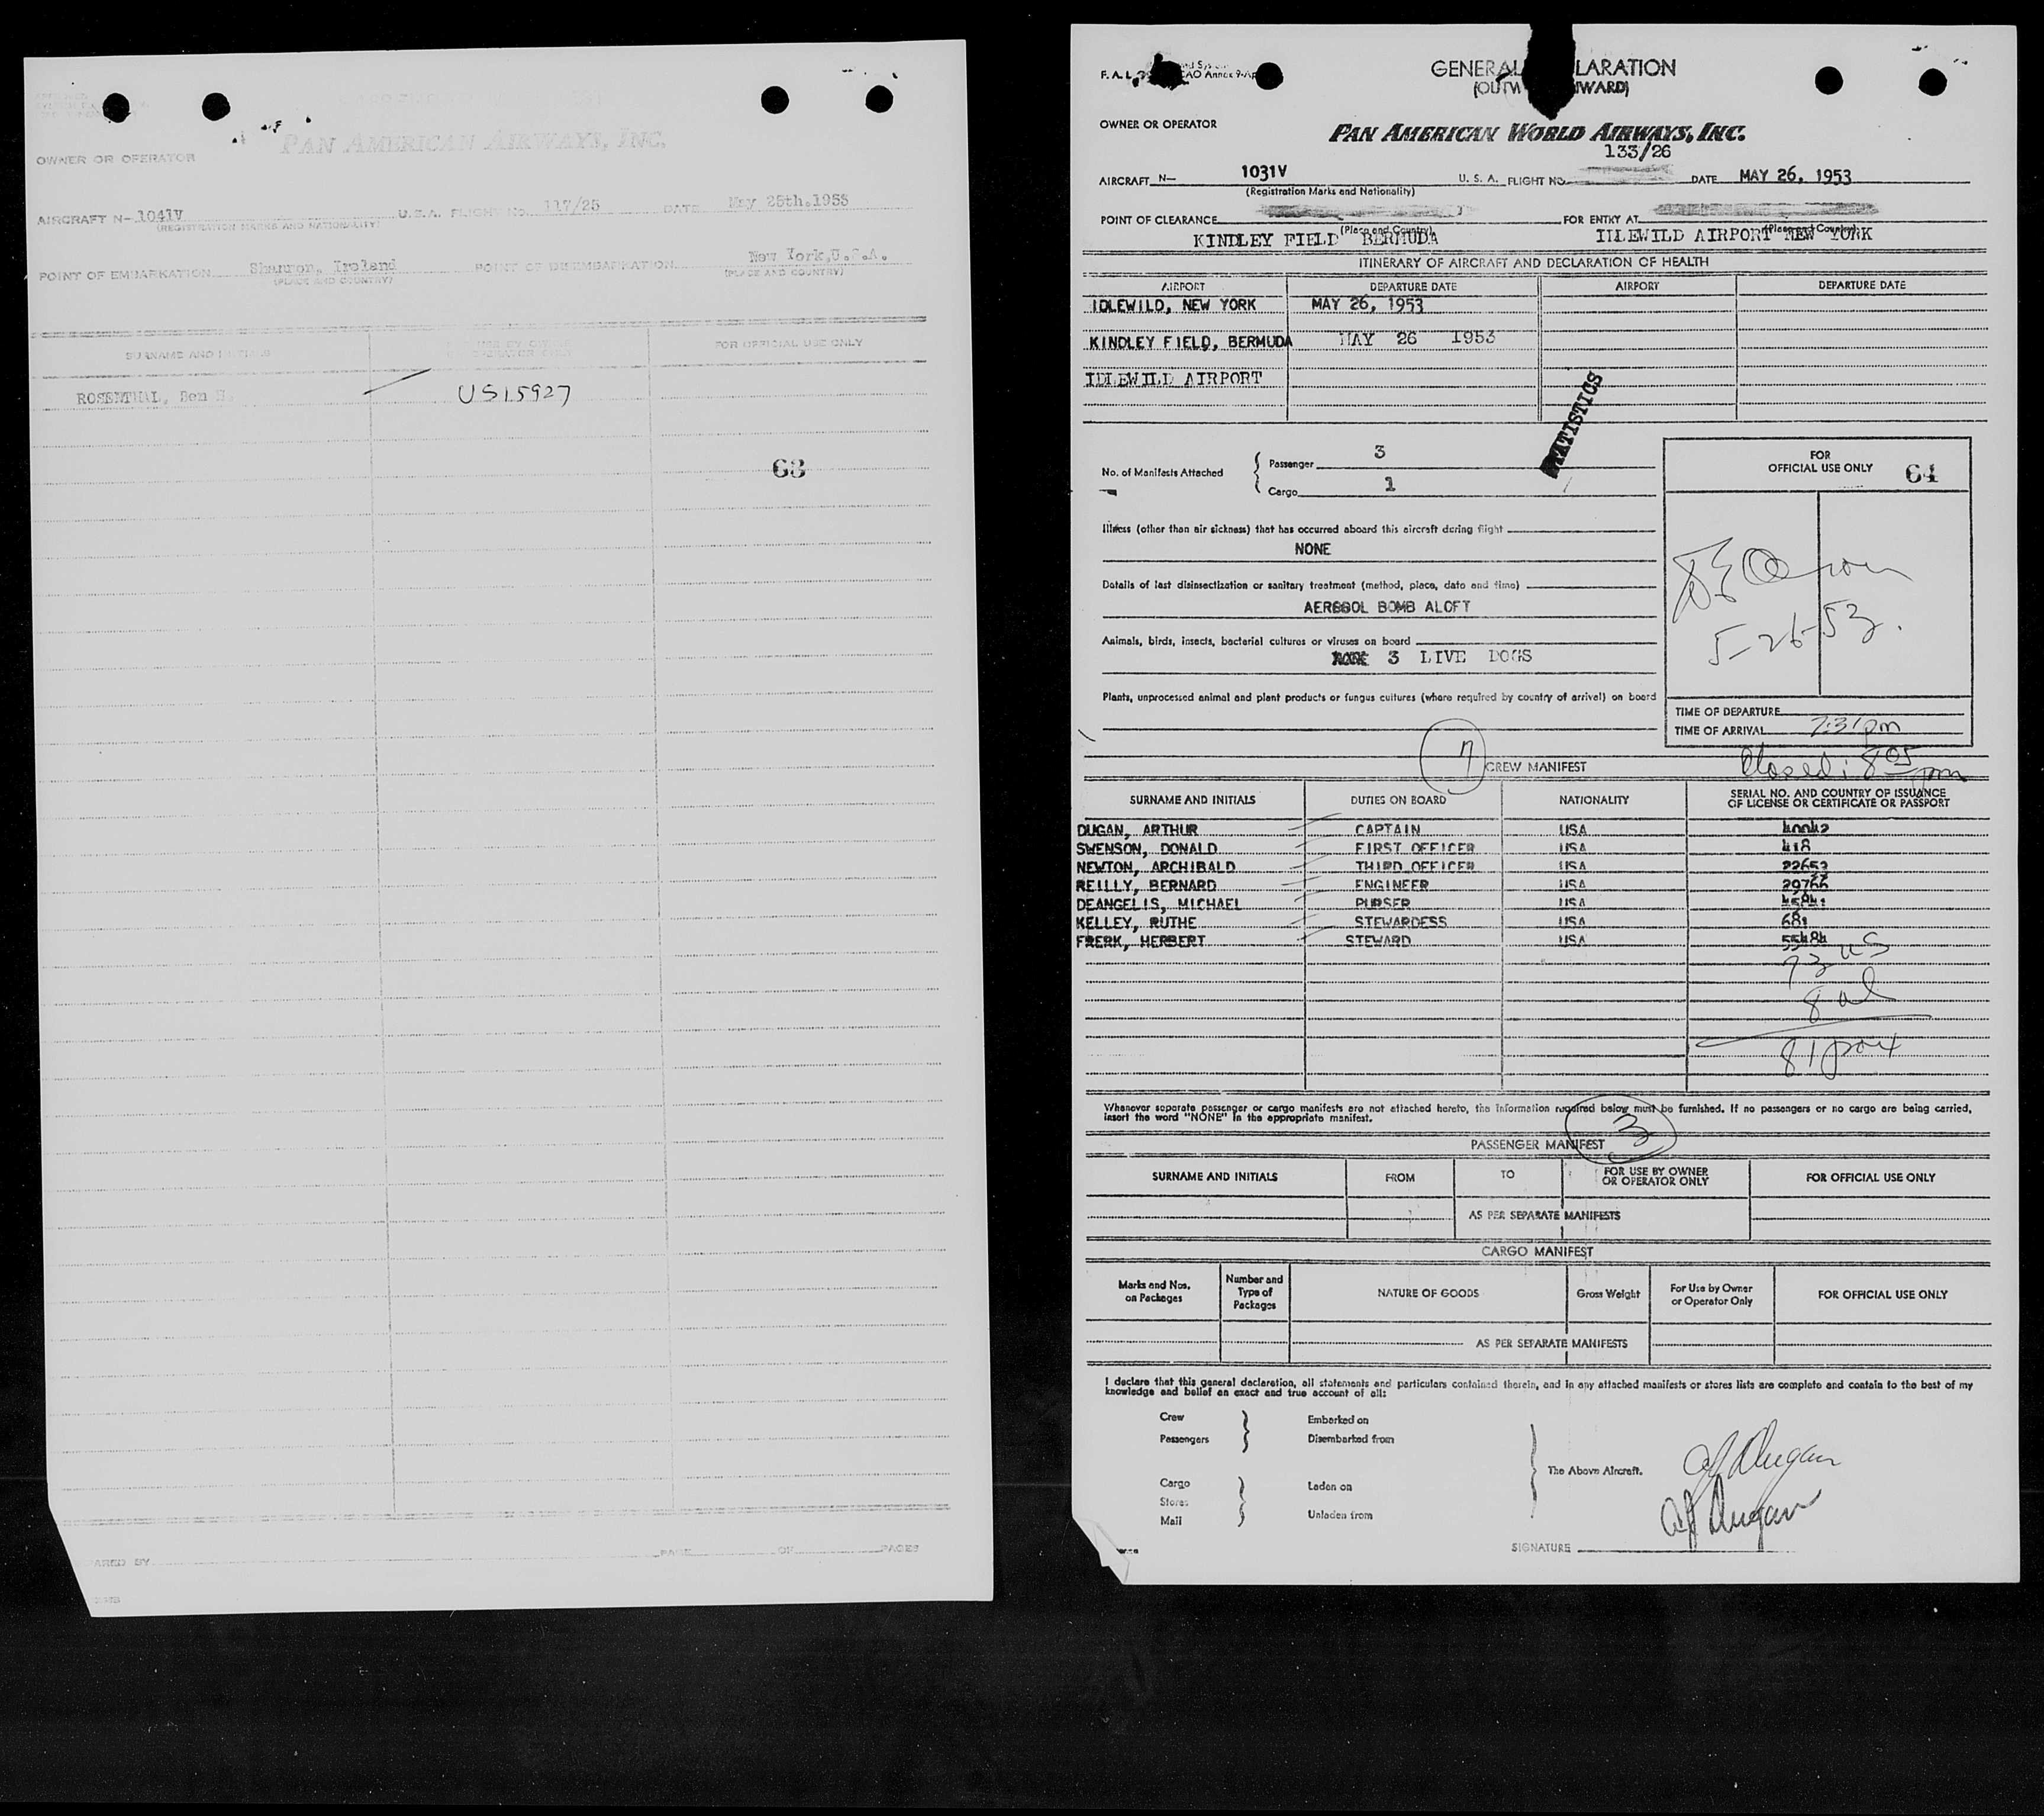 OWNER OR OPERATOR
PAN AMERICAN AIRWAYS, INC.
AIRCRAFT N- 1041V U.S.A. FLIGHT NO. 117/25 DATE May 25th.1953
(REGISTRATION MARKS AND NATIONALITY)
POINT OF EMBARKATION Shannon, Ireland POINT OF DISEMBARKATION New York,U.S.A.
(PLACE AND COUNTRY) (PLACE AND COUNTRY)
SURNAME AND INITIALS FOR OFFICIAL USE ONLY
OPERATOR ONLY
ROSENTHAL, Ben S. US15927
63
PAGE OF PAGES
GENERAL DECLARATION
F.A.L. ICAO Annex 9-Ap
OWNER OR OPERATOR
PAN AMERICAN WORLD AIRWAYS, INC.
133/26
AIRCRAFT N— 1031V U. S. A. FLIGHT NO. DATE MAY 26, 1953
(Registration Marks and Nationality)
POINT OF CLEARANCE FOR ENTRY AT
(Place and Country) (Place and Country)
KINDLEY FIELD BERMUDA IDLEWILD AIRPORT NEW YORK
ITINERARY OF AIRCRAFT AND DECLARATION OF HEALTH
AIRPORT DEPARTURE DATE AIRPORT DEPARTURE DATE
IDLEWILD, NEW YORK MAY 26, 1953
KINDLEY FIELD, BERMUDA MAY 26 1953
IDLEWILD AIRPORT
STATISTICS
No. of Manifests Attached
Passenger 3
Cargo 1
FOR
OFFICIAL USE ONLY 64
Illness (other than air sickness) that has occurred aboard this aircraft during flight
NONE
Details of last disinsectization or sanitary treatment (method, place, date and time)
AEROSOL BOMB ALOFT
5-26-53.
Animals, birds, insects, bacterial cultures or viruses on board
3 LIVE DOGS
Plants, unprocessed animal and plant products or fungus cultures (where required by country of arrival) on board
TIME OF DEPARTURE
TIME OF ARRIVAL 7:31pm
Closed: 8 05 pm
7
CREW MANIFEST
SURNAME AND INITIALS DUTIES ON BOARD NATIONALITY SERIAL NO. AND COUNTRY OF ISSUANCE
OF LICENSE OR CERTIFICATE OR PASSPORT
DUGAN, ARTHUR CAPTAIN USA
SWENSON, DONALD FIRST OFFICER USA 418
NEWTON, ARCHIBALD THIRD OFFICER USA 22653
REILLY, BERNARD ENGINEER USA
DEANGELIS, MICHAEL PURSER USA
KELLEY, RUTHE STEWARDESS USA 681
FRERK, HERBERT STEWARD USA 55484
73 US
8 al
81 pax
Whenever separate passenger or cargo manifests are not attached hereto, the information required below must be furnished. If no passengers or no cargo are being carried,
insert the word "NONE" in the appropriate manifest.
3
PASSENGER MANIFEST
SURNAME AND INITIALS FROM TO FOR USE BY OWNER
OR OPERATOR ONLY FOR OFFICIAL USE ONLY
AS PER SEPARATE MANIFESTS
CARGO MANIFEST
Marks and Nos.
on Packages
Number and
Type of
Packages
NATURE OF GOODS Gross Weight
For Use by Owner
or Operator Only
FOR OFFICIAL USE ONLY
AS PER SEPARATE MANIFESTS
I declare that this general declaration, all statements and particulars contained therein, and in any attached manifests or stores lists are complete and contain to the best of my
knowledge and belief an exact and true account of all:
Crew Embarked on
Passengers Disembarked from
The Above Aircraft.
Cargo Laden on
Stores
Mail Unladen from
AJ Dugan
AJ Dugan
SIGNATURE